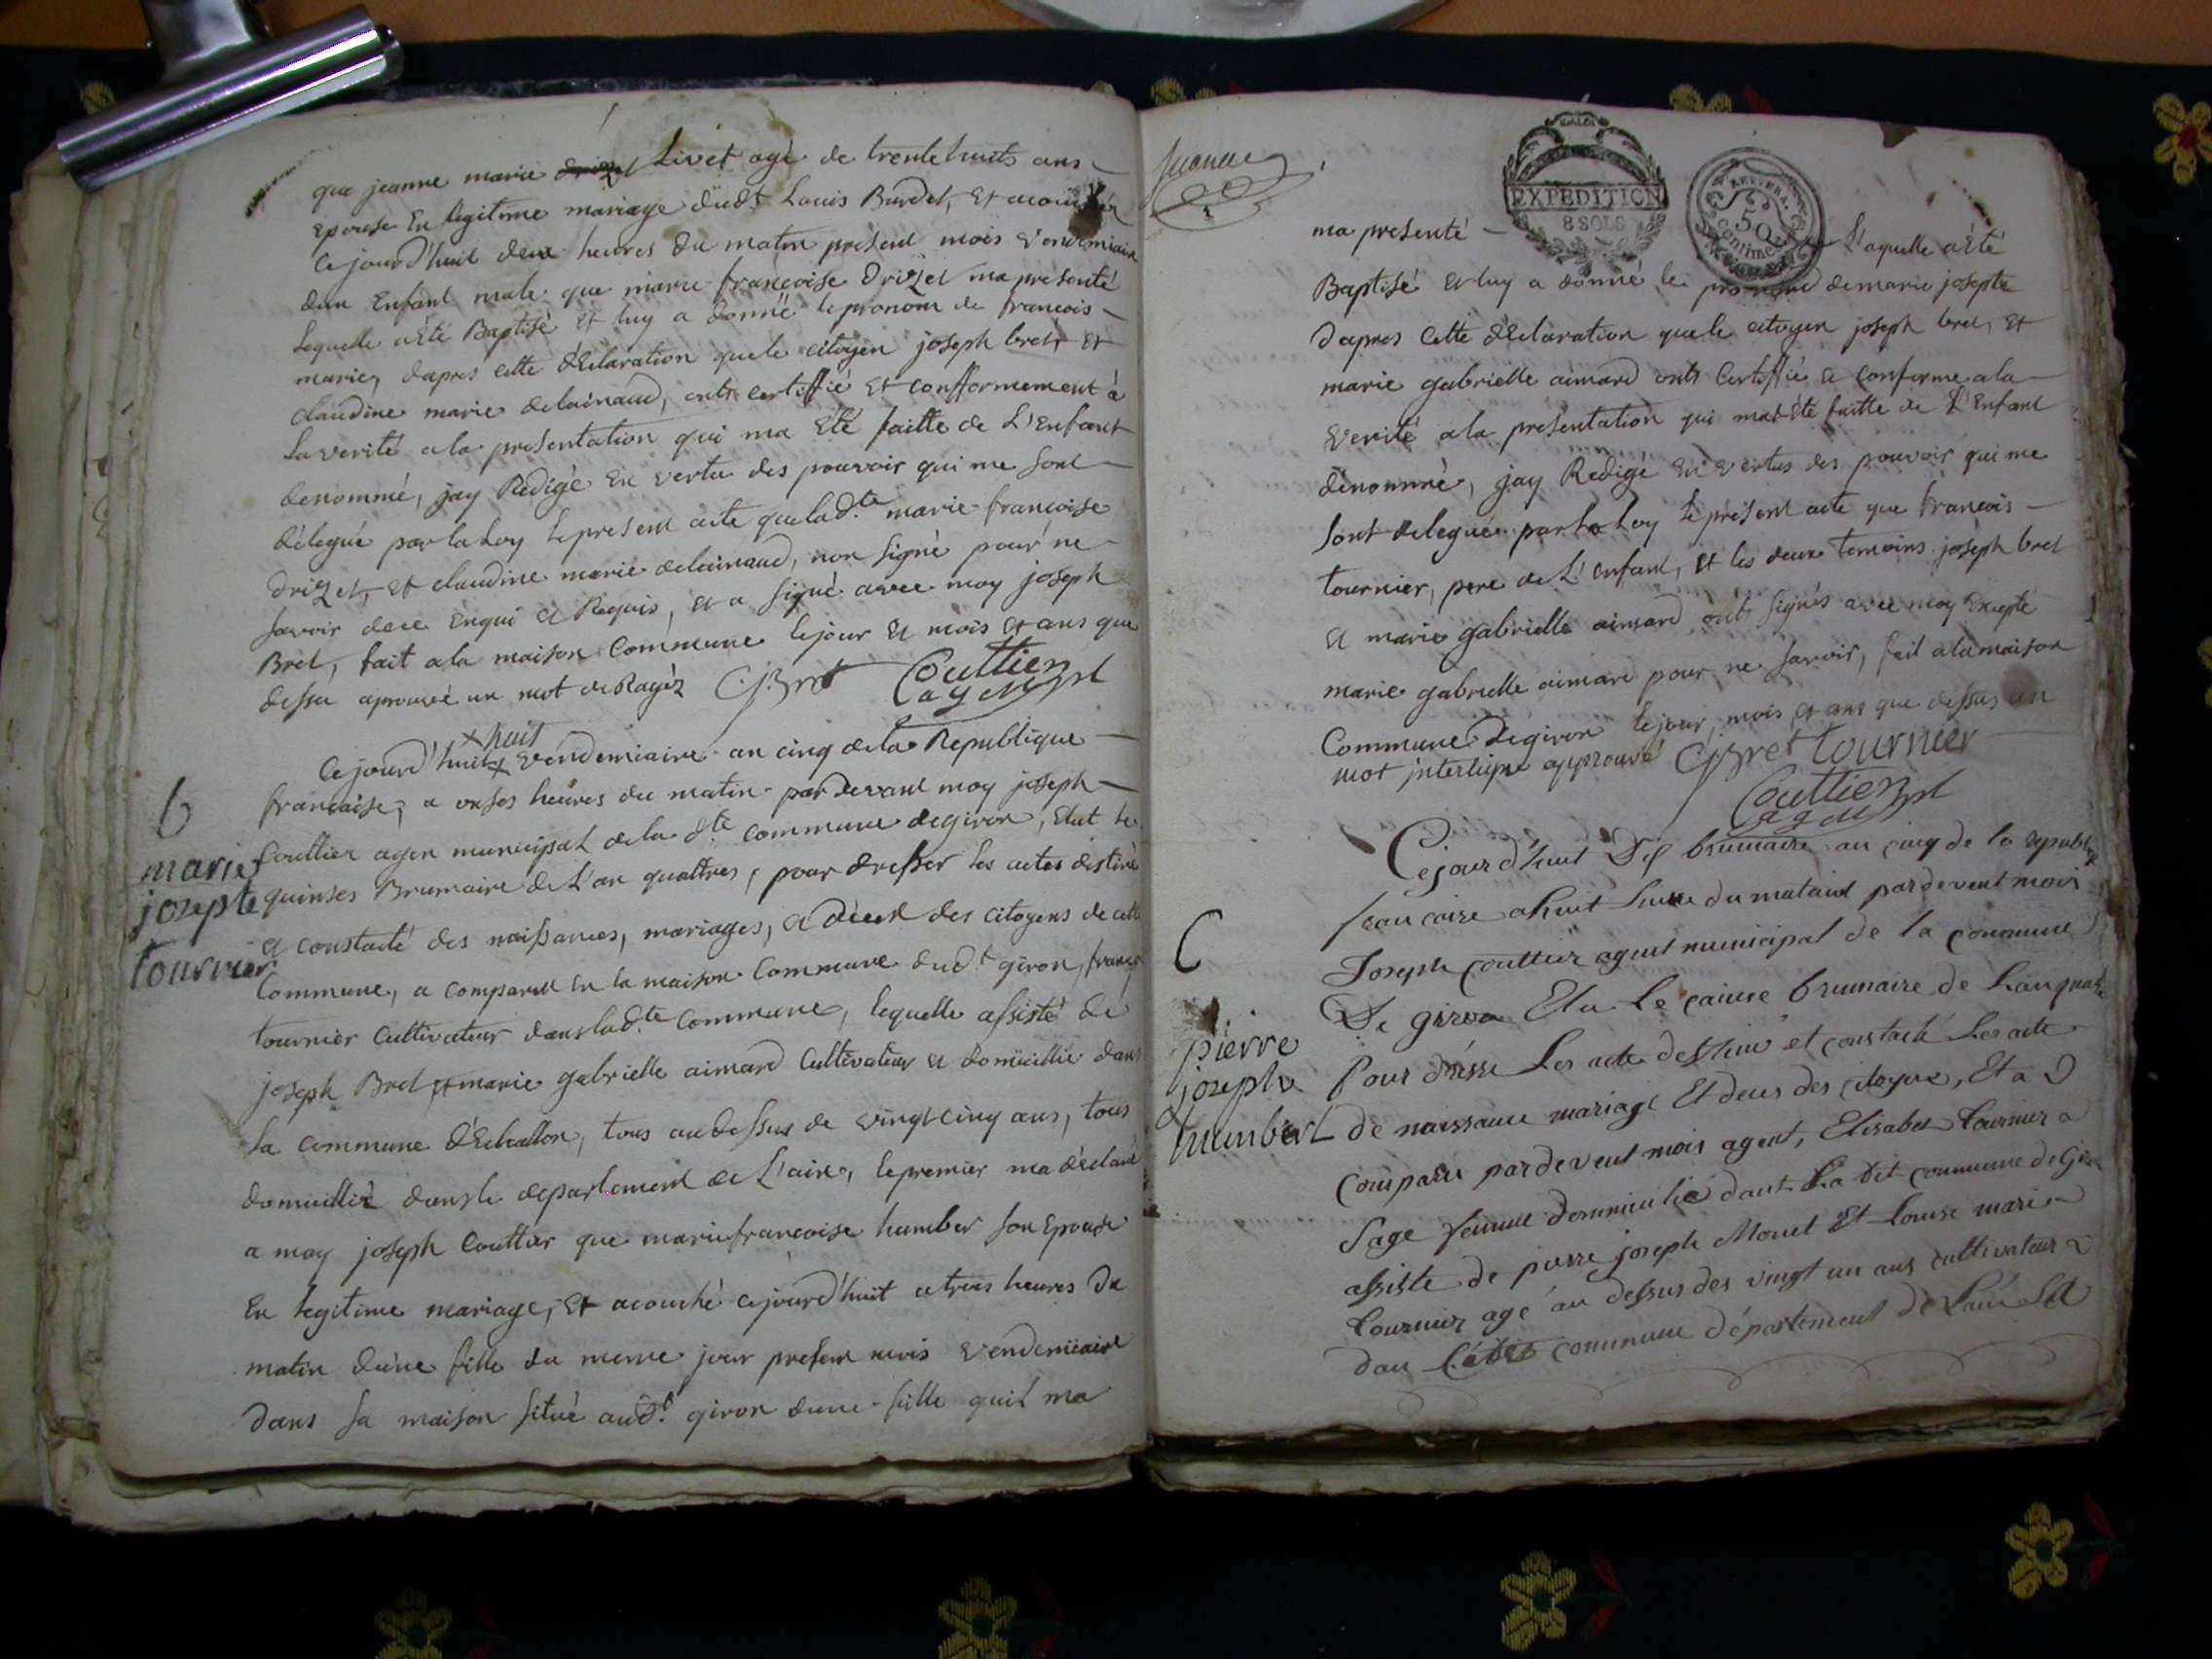 que jeanne marie Livet agé de trente huits ans
epouse En legitime mariage dudt Louis Burdet, Et acouché
Ce jourd'huit deux heures du matin present mois vendemiaire
dun Enfant male que marie françoise Drizet ma présenté
Lequelle a été Baptisé et luy a donné le pronom de francois
marie, dapres cette déclaration que le citoyen joseph bret, et
claudine marie delainaud, onts certiffié Et confformement à
La verité a la presentation qui ma été faitte de L'Enfant
denommé, jay Redigé En vertu des pouvoir qui me sont
délegué par la Loy le present acte que ladte marie françoise
Drizet, et claudine marie delainaud, non signé pour ne
savoir dece Enqui et Requis, et a signé avec moy joseph
Bret, fait a la maison Commune le jour et mois et ans que
dessu aprouvé un mot de Rayéz CJBret Couttier agent
x huit
Ce jourd'huit x vendemiaire an cinq de la Republique
francaise, a onses heures du matin par devant moy joseph
6
Couttier agen municipal de la dte commune degiron, Elut le
marie
josepte
tournier
quinses Brumaire de L'an quattres, pour dresser les actes destiné
et constaté des naissances, mariages, et décest des citoyens de cette
Commune, a comparut en la maison Commune dudt giron, françois
tournier Cultivateur dans ladte Commune, lequelle assisté de
joseph Bret et marie gabrielle aimard Cultivateur et domicillié dans
la commune d'Echallon, tous au dessus de vingt cinq ans, tous
domicillié dans le departement de L'ain, le premier ma déclaré
a moy joseph Couttier que marie francoise humber son Epouse
En legitime mariage, Et acouché ce jourd'huit a trois heures du
matin d'une fille du meme jour presen mois vendemiaire
dans sa maison situé audt giron dune fille quil ma
EXPEDITION
8 SOLS
50
Centimes
ma presenté L'aquelle a été
Baptisé et luy a donné le pronom de marie josepte
dapres cette déclaration que le citoyen joseph bret, et
marie gabrielle aimard onts certiffié et conforme a la
verité a la presentation qui mat été faitte de L'Enfant
dénommé, jay Redigé En vertus des pouvoir qui me
sont delegué par la Loy le présent acte que francois
tournier, pere de L'enfant, et les deux temoins joseph bret
et marie gabrielle aimard ont signés avec moy Excepté
marie gabrielle aimard pour ne savoir, fait a la maison
Commune de giron le jour, mois et ans que dessus un
mot interligne approuvé CJBret tournier
Couttier agent
Ce jour d'huit Dis brumaire an cinq de la republiq
francaise a huit heure du matain par devent mois
C
Joseph Couttier agent municipal de la commune
De giron Elu Le cainse brumaire de L'an quatre
pierre
joseph
humbert
Pour drésse Les acte destiné et constaté Les acte
de naissance mariage Et deces des citoyens, Et a
Comparu par devent mois agent, Elisabet tournier a
Sage femme dommicilié dant La dit commune de Giron
assiste de pierre joseph Monet Et Louise marie
tournier agé au dessus des vingt un ans cultivateur
dan commune département de L'ain